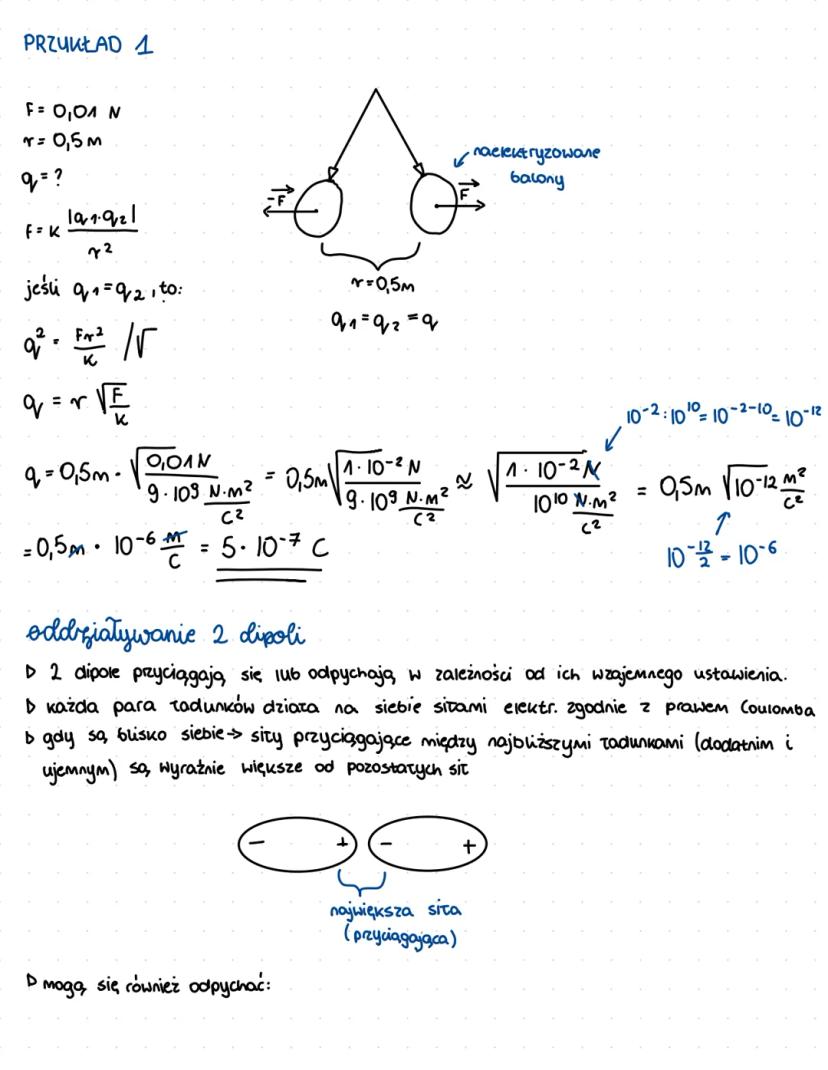 PRZYKŁAD 1
F = 0,01 N
r = 0,5 m
q = ?
F = K |q1·q2| / r²
jeśli q1 = q2, to:
q² = Fr²/K /√
q = r √(F/K)
naelektryzowane
balony
-F
F
r = 0,5m
q1 = q2 = q
10⁻² : 10¹⁰ = 10⁻²⁻¹⁰ = 10⁻¹²
q = 0,5m · √(0,01N / 9·10⁹ N·m²/C²) = 0,5m √(1·10⁻² N / 9·10⁹ N·m²/C²) ≈ √(1·10⁻² N / 10¹⁰ N·m²/C²) = 0,5m √(10⁻¹² m²/C²)
= 0,5m · 10⁻⁶ M/C = 5·10⁻⁷ C
10^(-12/2) = 10⁻⁶
oddziaływanie 2 dipoli
▷ 2 dipole przyciągają się lub odpychają w zależności od ich wzajemnego ustawienia.
▷ każda para ładunków działa na siebie siłami elektr. zgodnie z prawem Coulomba
▷ gdy są blisko siebie → siły przyciągające między najbliższymi ładunkami (dodatnim i
ujemnym) są wyraźnie większe od pozostałych sił
- + - +
największa siła
(przyciągająca)
▷ mogą się również odpychać: